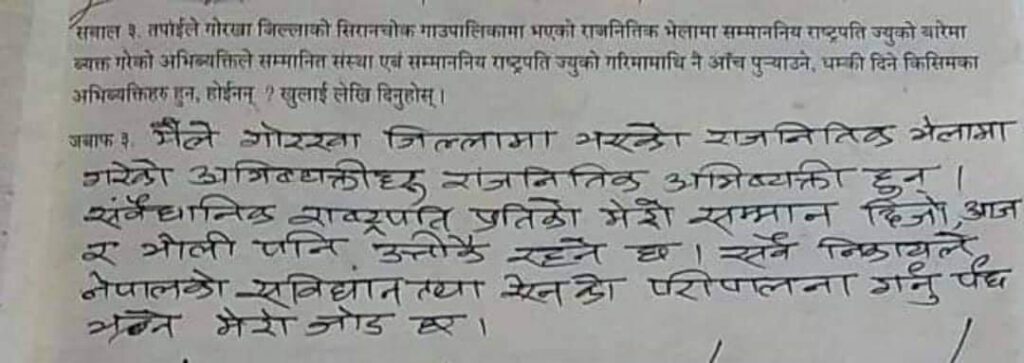 सवाल ३. तपाईले गोरखा जिल्लाको सिरानचोक गाउपालिकामा भएको राजनितिक भेलामा सम्माननिय राष्ट्रपति ज्युको बारेमा
व्यक्त गरेको अभिव्यक्तिले सम्मानित संस्था एवं सम्माननिय राष्ट्रपति ज्युको गरिमामाथि नै आँच पुर्‍याउने, धम्की दिने किसिमका
अभिव्यक्तिहरु हुन, होईनन् ? खुलाई लेखि दिनुहोस् ।
जवाफ ३. मैले गोरखा जिल्लामा भएको राजनितिक भेलामा
गरेको अभिव्यक्तीहरु राजनितिक अभिव्यक्ती हुन ।
संवैधानिक राष्ट्रपति प्रतिको मेरो सम्मान हिजो, आज
र भोली पनि उत्तीकै रहने छ । सवै निकायले
नेपालको संविधान तथा ऐनको परिपालना गर्नु पर्छ
भन्ने मेरो जोड छ ।